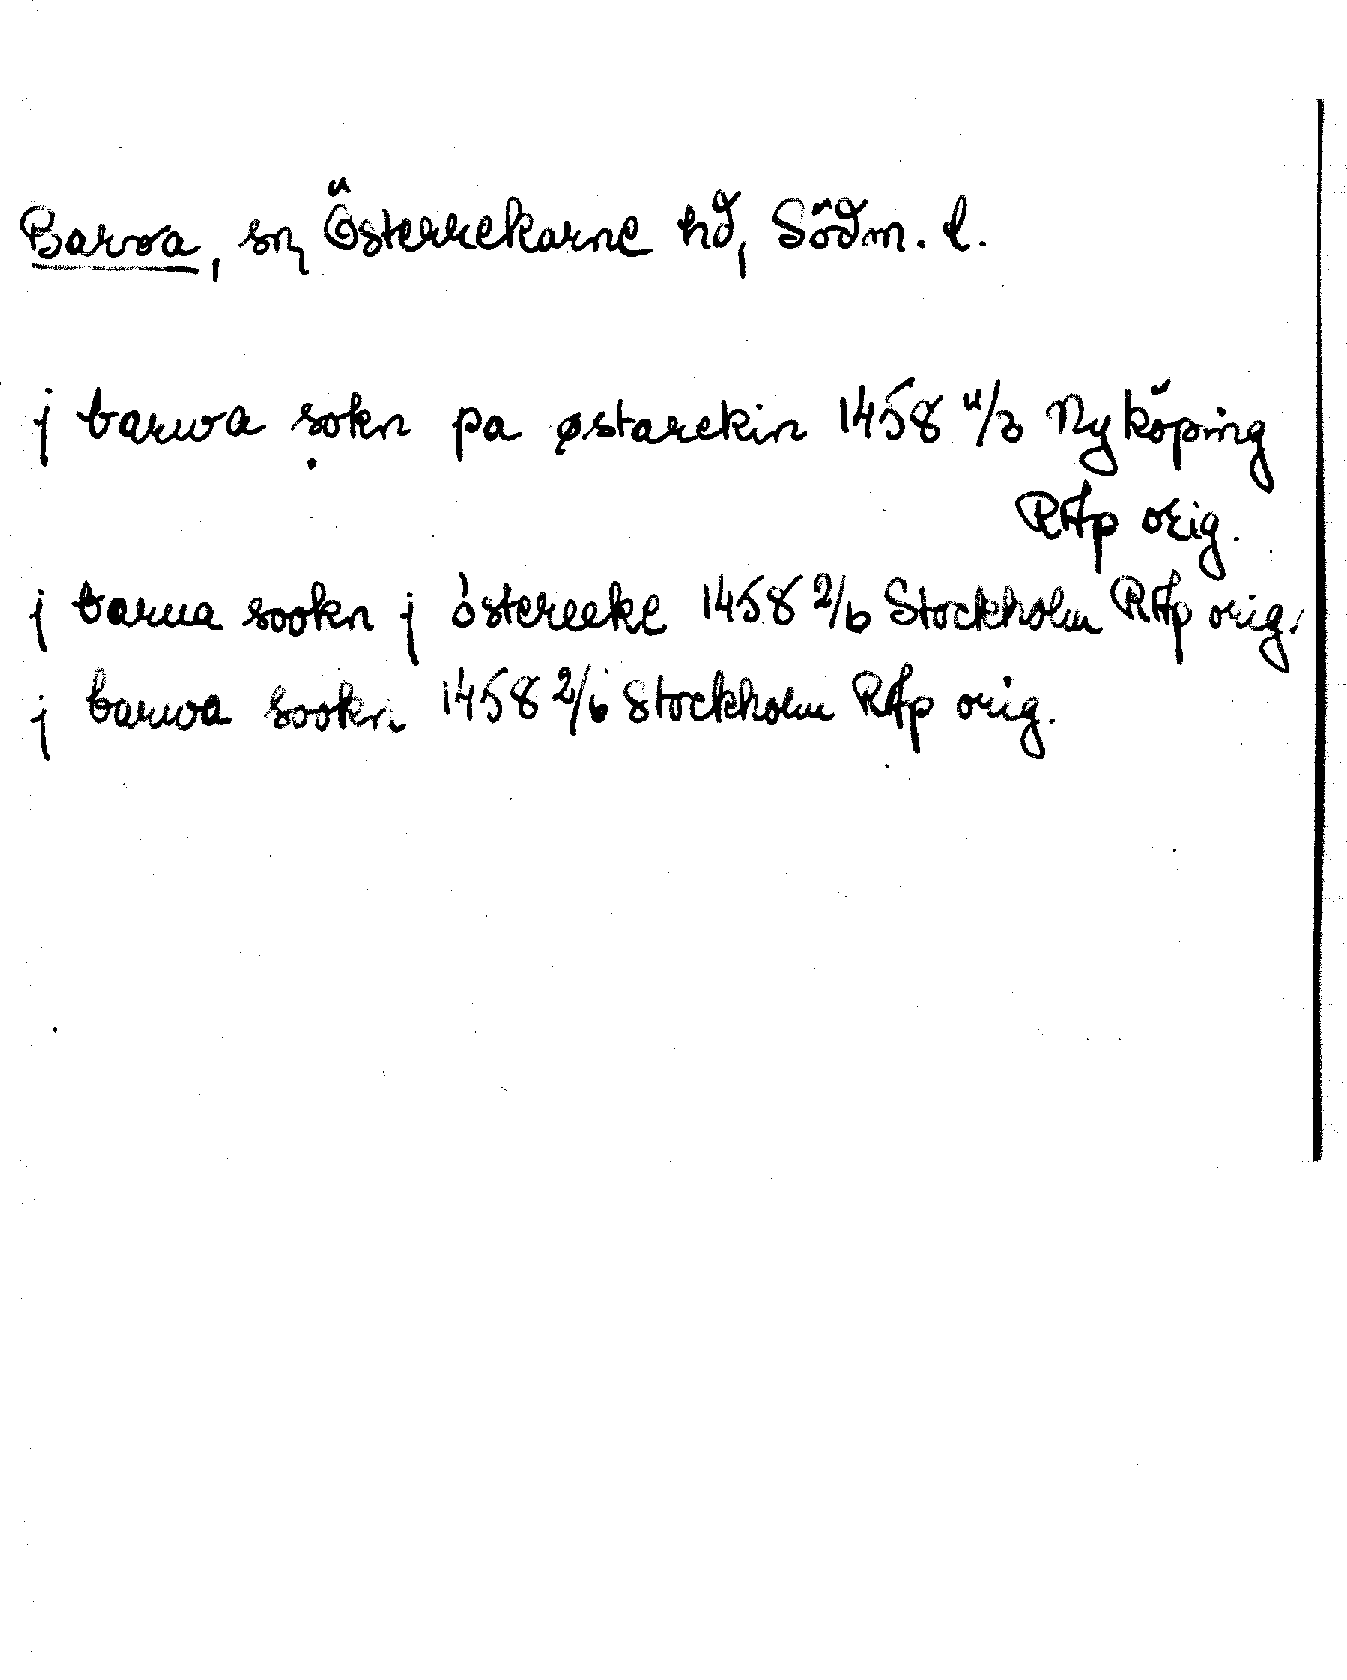 Barva, sn, Österrekarne hd, Södm. l.
j barwa sokn pa østarekin 1458 11/3 Nyköping
RAp orig.
j barua sookn j östereeke 1458 2/6 Stockholm RAp orig.
j barwa sookn 1458 2/6 Stockholm RAp orig.